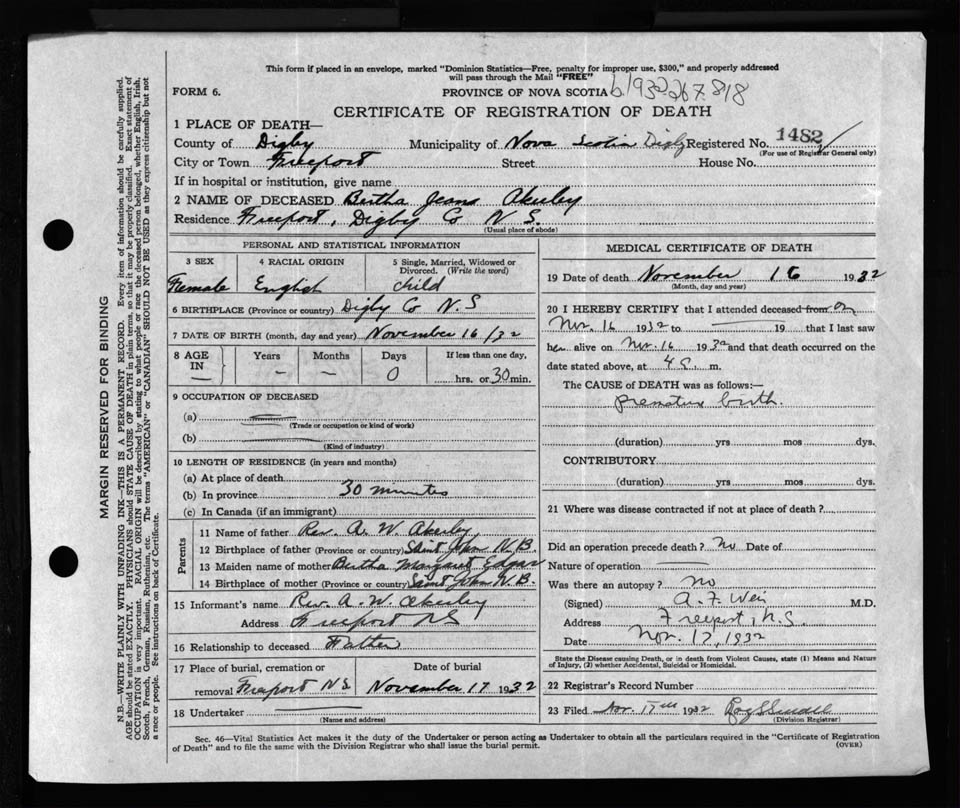 This form if placed in an envelope, marked "Dominion Statistics—Free, penalty for improper use, $300," and properly addressed
will pass through the Mail "FREE"
FORM 6.
PROVINCE OF NOVA SCOTIA
b. 1932 267 818
CERTIFICATE OF REGISTRATION OF DEATH
1 PLACE OF DEATH—
County of Digby Municipality of Nova Scotia Digby Registered No. 1482
(For use of Registrar General only)
City or Town Freeport Street House No.
If in hospital or institution, give name
2 NAME OF DECEASED Bertha Jeans Akerley
Residence Freeport, Digby Co N S
(Usual place of abode)
PERSONAL AND STATISTICAL INFORMATION
3 SEX 4 RACIAL ORIGIN 5 Single, Married, Widowed or
Divorced. (Write the word)
Female English Child
6 BIRTHPLACE (Province or country) Digby Co N.S
7 DATE OF BIRTH (month, day and year) November 16/32
8 AGE IN Years Months Days If less than one day,
— — — 0 hrs. or 30 min.
9 OCCUPATION OF DECEASED
(a)
(Trade or occupation or kind of work)
(b)
(Kind of industry)
10 LENGTH OF RESIDENCE (in years and months)
(a) At place of death
(b) In province 30 minutes
(c) In Canada (if an immigrant)
Parents
11 Name of father Rev. A. W. Akerley
12 Birthplace of father (Province or country) Saint John N.B.
13 Maiden name of mother Bertha Margaret Edgar
14 Birthplace of mother (Province or country) Saint John N.B.
15 Informant's name Rev. A. W. Akerley
Address Freeport NS
16 Relationship to deceased Father
17 Place of burial, cremation or Date of burial
removal Freeport N.S. November 17 1932
18 Undertaker
(Name and address)
MEDICAL CERTIFICATE OF DEATH
19 Date of death November 16 1932
(Month, day and year)
20 I HEREBY CERTIFY that I attended deceased from on
Nov. 16 1932 to — 19 that I last saw
her alive on Nov. 16 1932 and that death occurred on
date stated above, at 4 a. m.
The CAUSE of DEATH was as follows:—
premature birth.
(duration) yrs mos dys.
CONTRIBUTORY
(duration) yrs mos dys.
21 Where was disease contracted if not at place of death?
Did an operation precede death? No Date of
Nature of operation —
Was there an autopsy? No
(Signed) A. F. Weir M.D.
Address Freeport, N.S.
Date Nov. 17, 1932
State the Disease causing Death, or in death from Violent Causes, state (1) Means and Nature
of Injury, (2) whether Accidental, Suicidal or Homicidal.
22 Registrar's Record Number
23 Filed Nov. 17th 1932
(Division Registrar)
Sec. 46—Vital Statistics Act makes it the duty of the Undertaker or person acting as Undertaker to obtain all the particulars required in the "Certificate of Registration
of Death" and to file the same with the Division Registrar who shall issue the burial permit. (OVER)
MARGIN RESERVED FOR BINDING
N.B.—WRITE PLAINLY WITH UNFADING INK—THIS IS A PERMANENT RECORD. Every item of information should be carefully supplied.
AGE should be stated EXACTLY. PHYSICIANS should STATE CAUSE OF DEATH in plain terms, so that it may be properly classified. Exact statement of
OCCUPATION is very important. RACIAL ORIGIN will be described by stating to what people or race the deceased person belonged, whether English, Irish,
Scotch, French, German, Russian, Ruthenian, etc. The terms "AMERICAN" or "CANADIAN" SHOULD NOT BE USED as they express citizenship but not
a race or people. See instructions on back of Certificate.